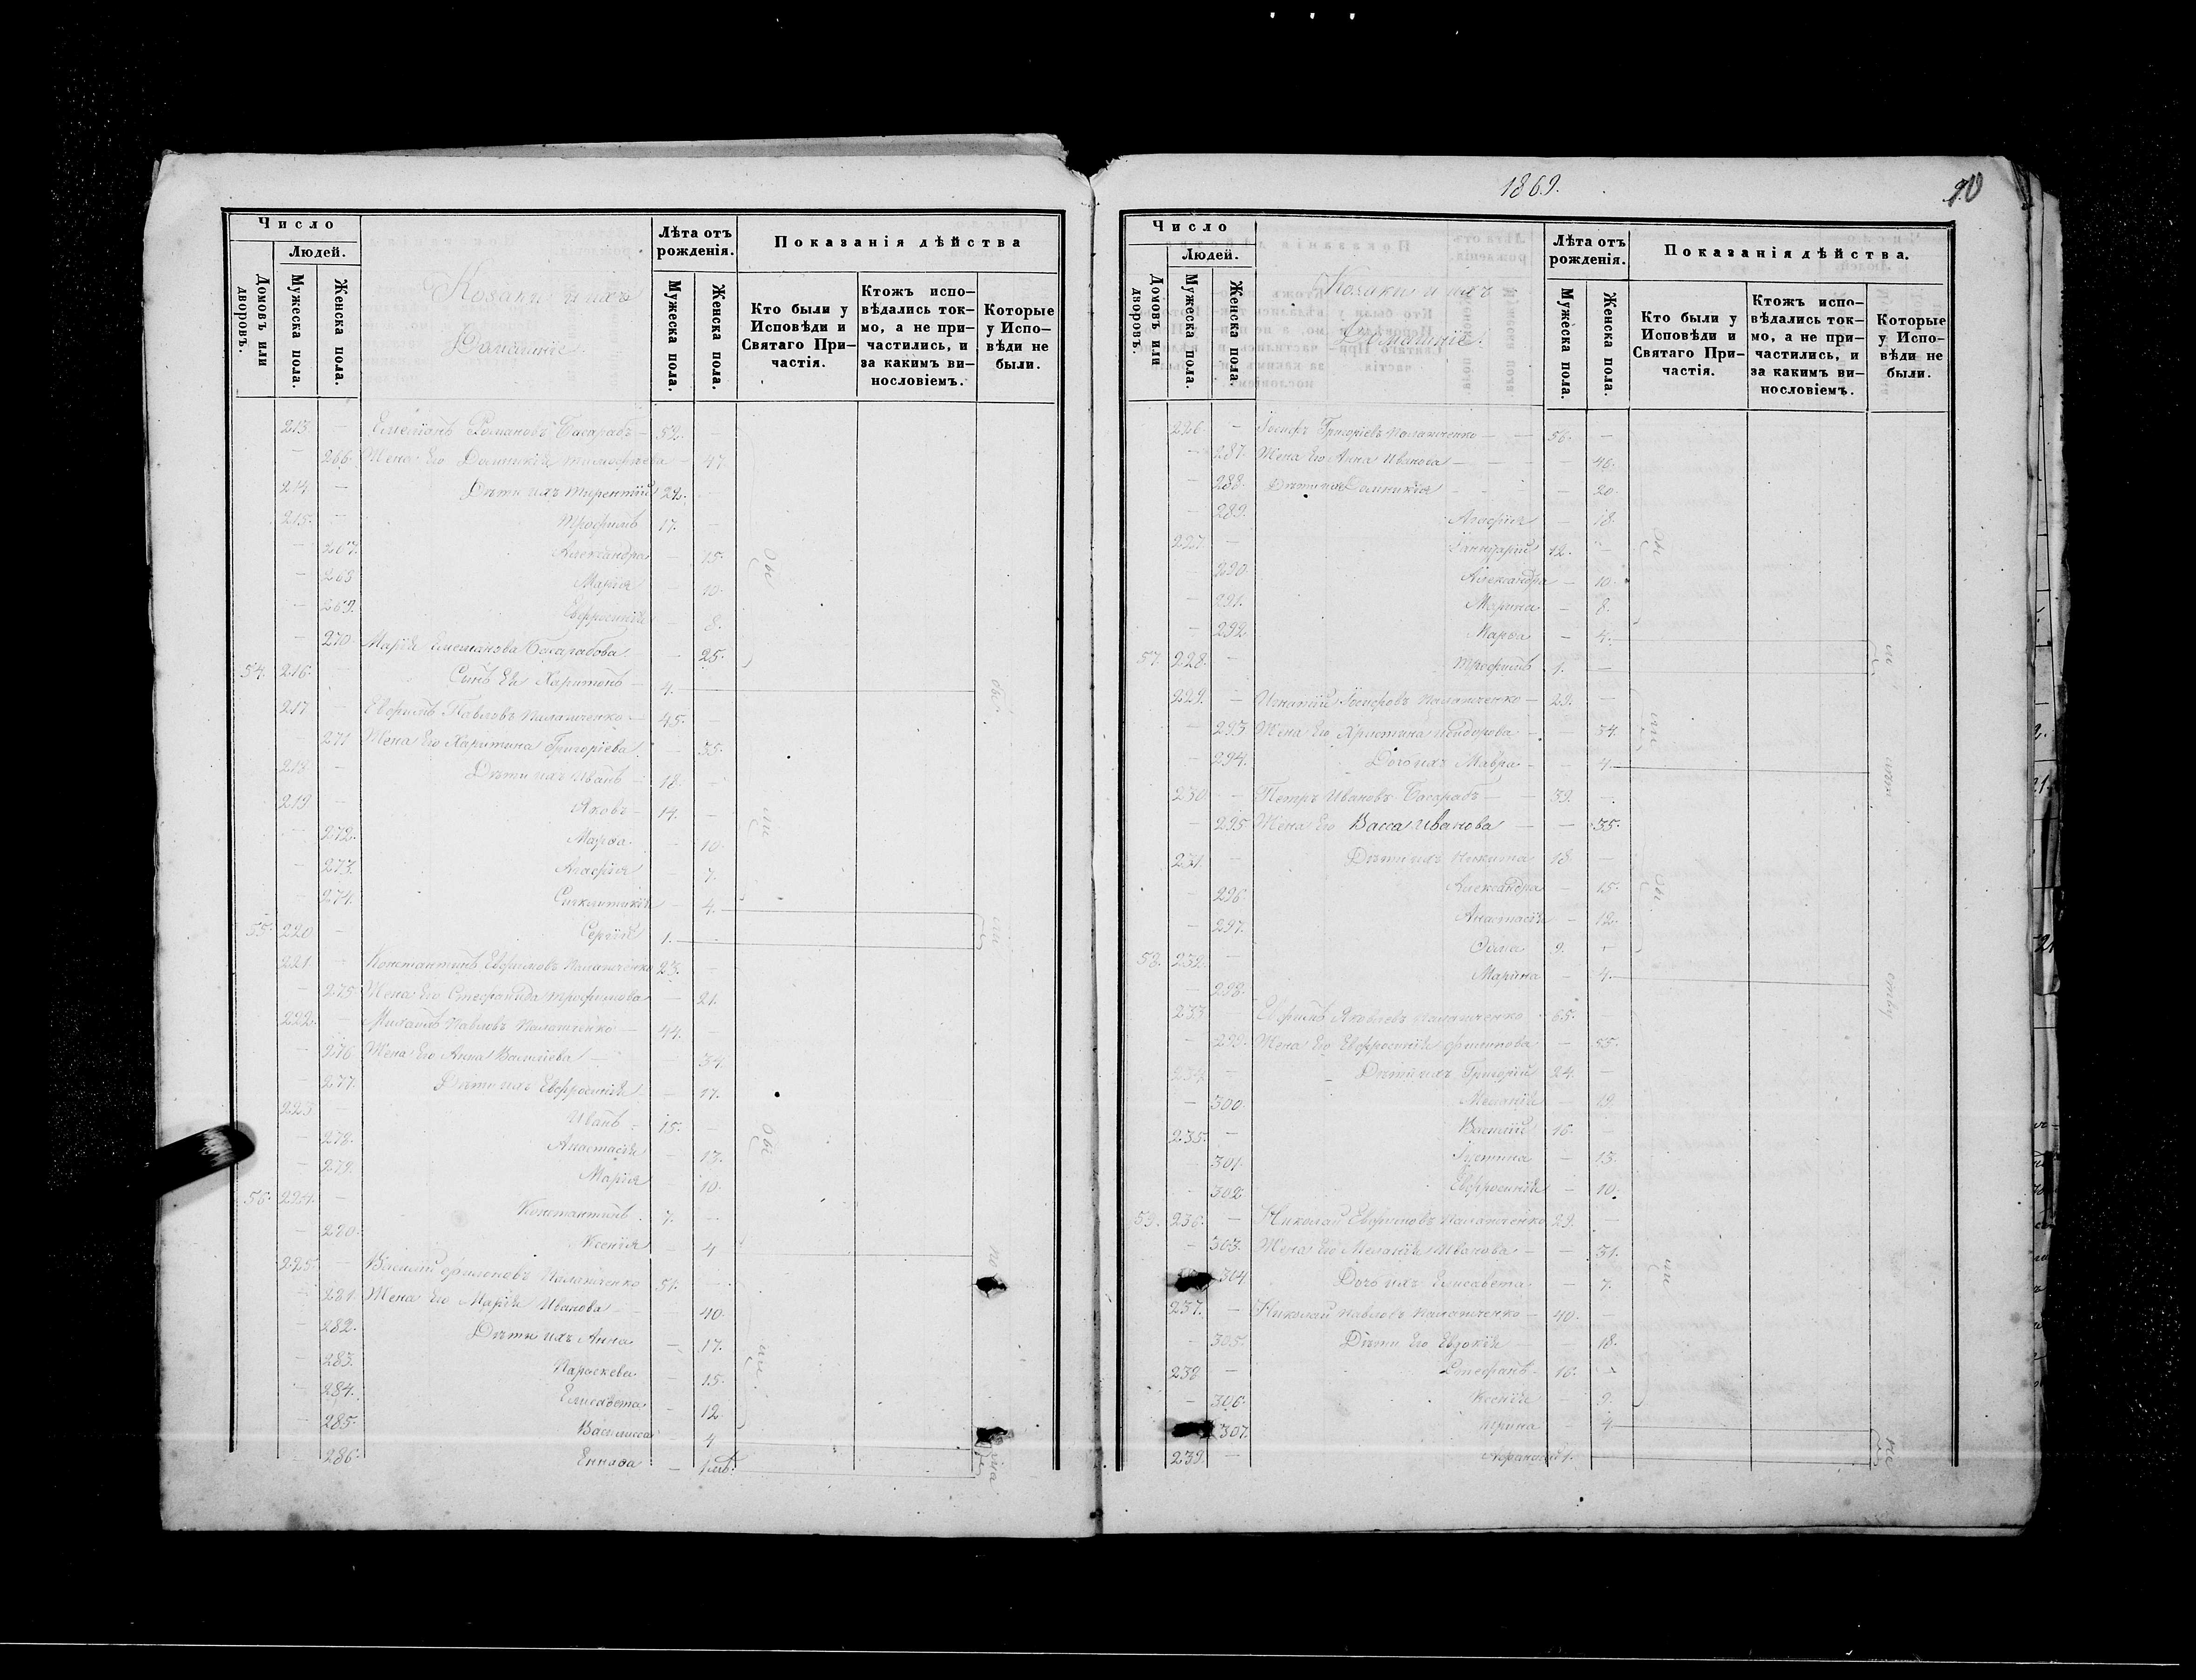 1869.
10
Число
Людей.
Домовъ или дворовъ.
Мужеска пола.
Женска пола.
Козаки и ихъ
Домашніе.
Лѣта отъ рожденія.
Мужеска пола.
Женска пола.
Показанія дѣйства
Кто были у Исповѣди и Святаго Причастія.
Ктожъ исповѣдались токмо, а не причастились, и за какимъ винословіемъ.
Которые у Исповѣди не были.
213. — Емеліанъ Романовъ Басарабъ — 52. —
— 266. Жена Его Домникія Тимофѣева — 47.
214. — Дѣти ихъ Терентій 22. —
215. — Трофимъ 17. —
— 267. Александра — 15.
— 268 Марія — 13.
— 269. Евфросинія — 8.
— 270 Марія Емеліанова Басарабова — 25.
54. 216. — Сынъ Ея Харитонъ — 4.
217 — Евфимъ Павловъ Паламченко — 45. —
— 271 Жена Его Харитина Григоріева — 35.
218 — Дѣти ихъ Иванъ — 18. —
219 — Яковъ — 14. —
— 272. Марѳа — 10.
— 273. Агафія — 7.
— 274. Синклитикія — 4.
55. 220 — Сергій 1.
221 — Константинъ Евфимовъ Паламченко 23. —
— 275 Жена Его Стефанида Трофимова — 21.
222. — Павловъ Паламченко — 44. —
— 276 Жена Его Анна Василіева — 34
— 277. Дѣти ихъ Евфросинія — 17.
223 — Иванъ 15. —
— 278. Анастасія — 13.
— 279. Марія — 10.
56. 224. — Константинъ 7. —
— 280. Ксенія — 4
225. — Василій Паламченко 51. —
— 281. Жена Его Марія Иванова — 40.
— 282. Дѣти ихъ Анна — 17.
— 283. Параскева — 15.
— 284. Елисавета — 12.
— 285. Василисса — 4
— 286. —
Число
Людей.
Домовъ или дворовъ.
Мужеска пола.
Женска пола.
Козаки и ихъ
Домашніе.
Лѣта отъ рожденія.
Мужеска пола.
Женска пола.
Показанія дѣйства.
Кто были у Исповѣди и Святаго Причастія.
Ктожъ исповѣдались токмо, а не причастились, и за какимъ винословіемъ.
Которые у Исповѣди не были.
226. — Іосифъ Григоріевъ Паламченко — 56. —
— 287. Жена Его Анна Иванова — 46.
— 288. Дѣти ихъ Домникія — 20.
— 289. Агафія — 18.
227. — Іаннуарій 12. —
— 290 Александра — 10.
— 291. Марина — 8.
— 292 Марѳа — 4.
57. 228. — Трофимъ 1. —
229. — Игнатій Іосифовъ Паламченко — 29. —
— 293 Жена Его Христина Исидорова — 34.
— 294. Дочь ихъ Мавра — 4.
230 — Петръ Ивановъ Басарабъ — 39. —
— 295 Жена Его Васса Иванова — 35.
231. — Дѣти ихъ Никита 18. —
— 296. Александра — 15.
— 297. Анастасія — 12.
58. 232. — Ѳома 9. —
— 298. Марина — 4.
233 — Евфимъ Яковлевъ Паламченко 65. —
— 299. Жена Его Евфросинія Филипова — 55.
234 — Дѣти ихъ Григорій 24. —
— 300 Меланія — 19
235. — Василій 16. —
— 301. Іустина — 13.
— 302 Евфросинія — 10.
59. 236. — Николай Евфимовъ Паламченко 29. —
— 303. Жена Его Меланія Иванова — 31.
304 Дочь ихъ Елисавета — 7.
237. — Николай Павловъ Паламченко — 40. —
— 305. Дѣти Его Евдокія — 18.
238 — Стефанъ 16. —
— 306. Ксенія — 9.
307. Ирина — 4
239. — Афанасій 1.